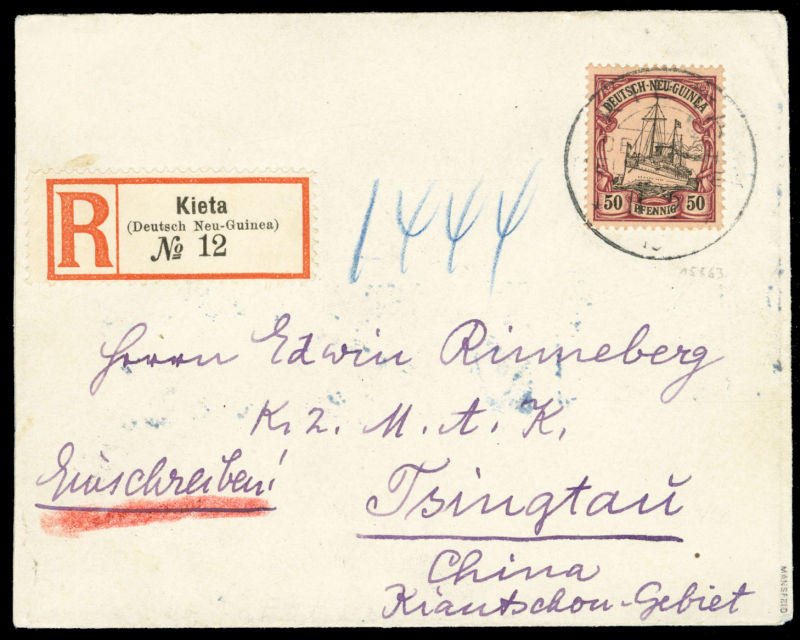 DEUTSCH-NEU-GUINEA
50 PFENNIG 50
R
Kieta
(Deutsch Neu-Guinea)
№ 12
1444
15363
Herrn Edwin Rinneberg
K. 2. M. A. K.
Einschreiben!
Tsingtau
China
Kiautschou-Gebiet
MANSFELD